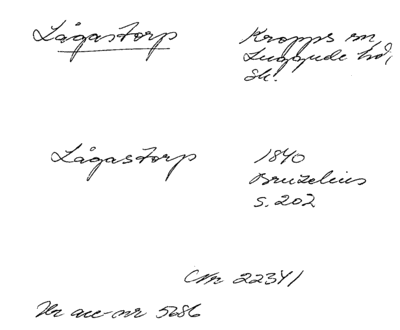 Lågastorp
Kropps sn,
Luggude hd,
Sk.
Lågastorp
1840
Bruzelius
s. 202
22341
acc-nr 5686